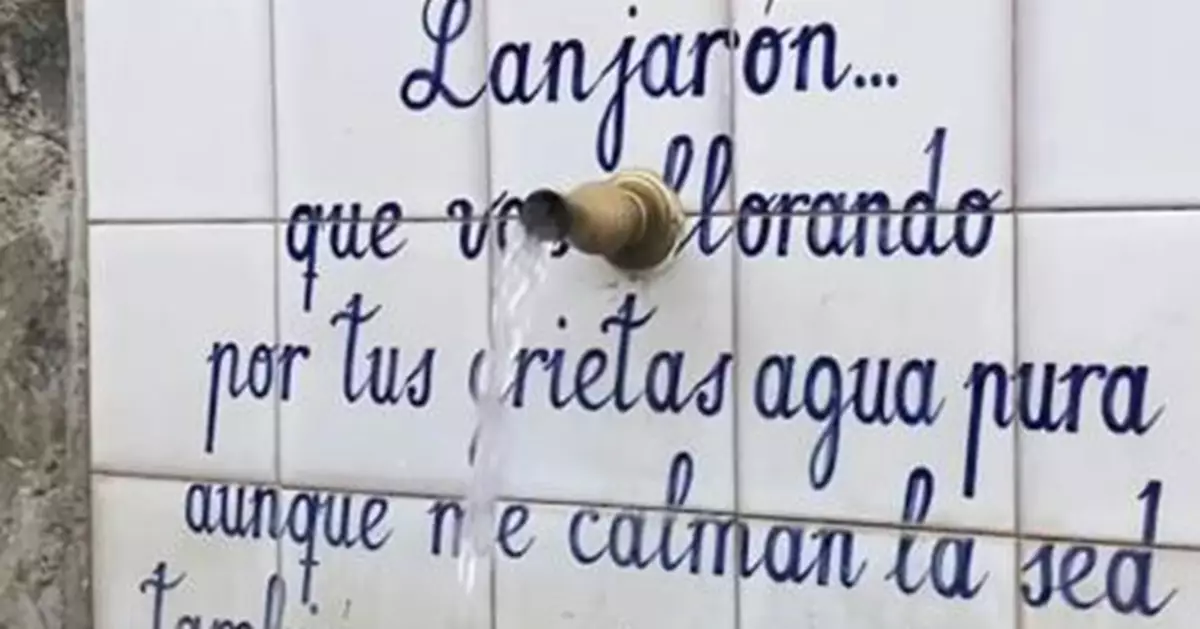 Lanjarón...
que vas llorando
por tus grietas agua pura
aunque me calman la sed